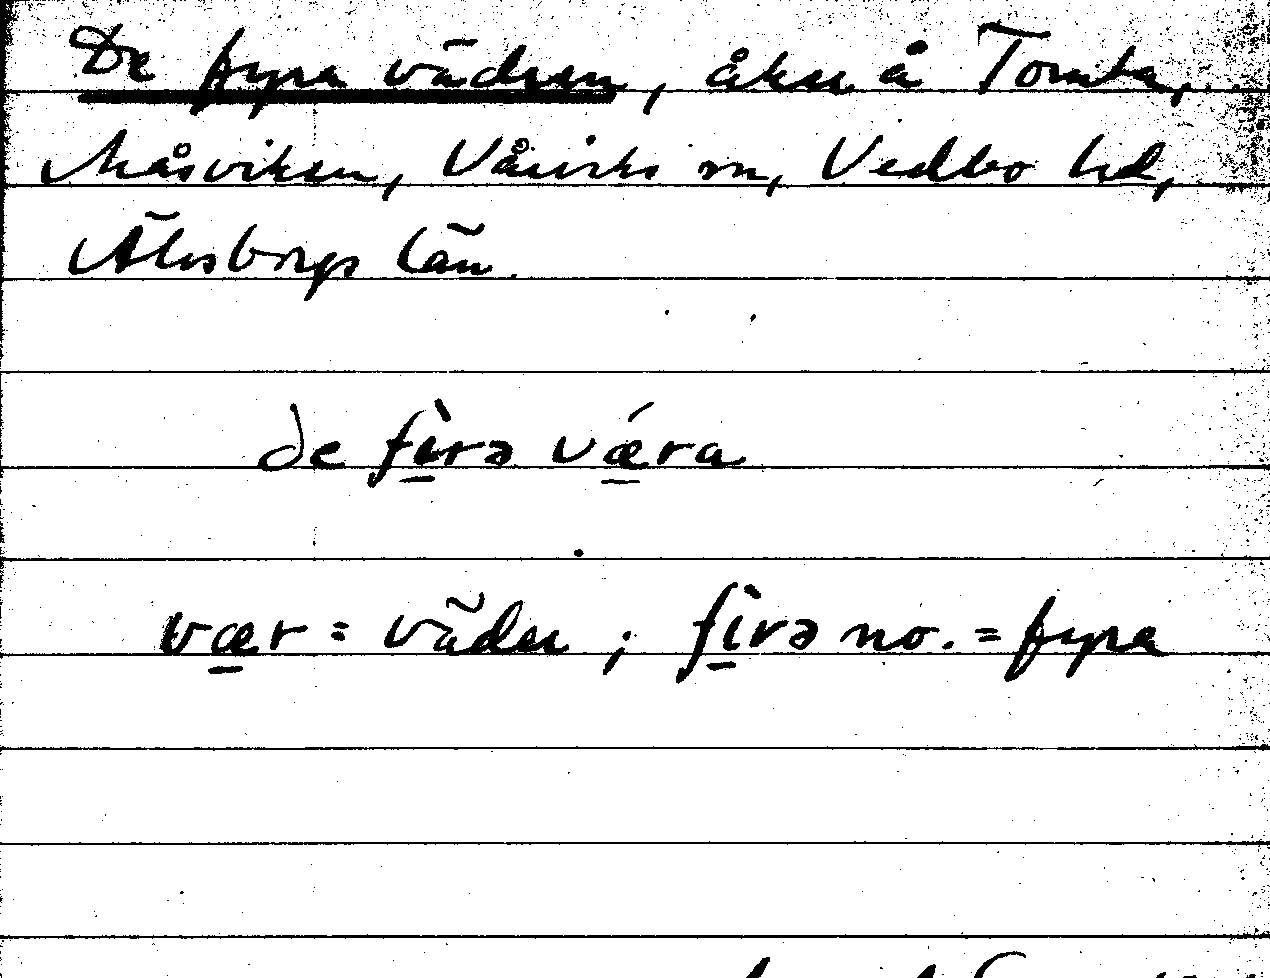 De fyra vädren, åker å Tomta,
Måsviken, Vårviks sn, Vedbo hd,
Älvsborgs län.
de fìrə vǽra
vær = väder ; fìrə no. = fyra